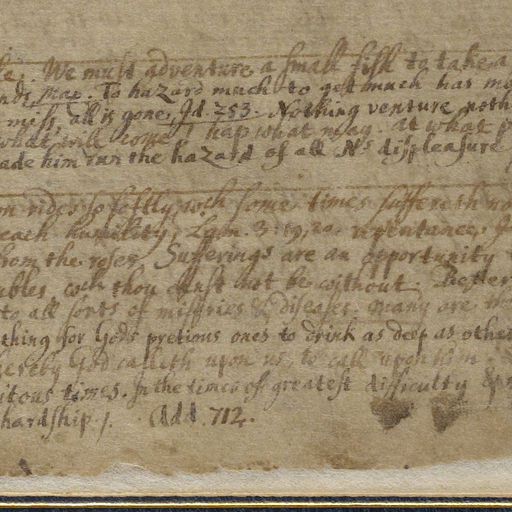 We must adventure a small fish to take a
To hazard much to get much has mo
miss, all is gone, Id. 253. Nothing venture noth
what will come / hap what may. At what
ade him run the hazard of all Ns displeasure
on rides so softly, wch some times suffereth no
each humility, Lam. 3. 19, 20. repentance.
from the reser Sufferings are an opportunity
ubles wch thou canst not be without
to all sorts of miseries & diseases. many are the
thing for Gods pretious ones to drink as deep as other
hereby God calleth upon us, to call upon him
itous times. In the times of greatest difficulty &
hardship /. Add. 712.